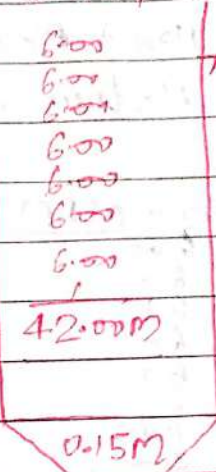 6.00
6.00
6.00
6.00
6.00
6.00
6.00
42.00M
0.15M